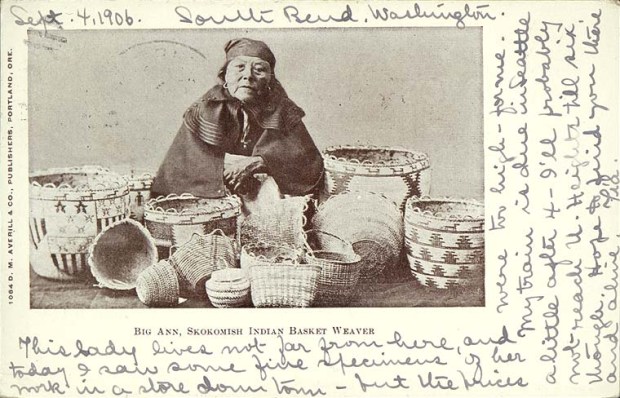 Sept. 4, 1906. South Bend, Washington.
1064 D. M. AVERILL & CO., PUBLISHERS, PORTLAND, ORE.
BIG ANN, SKOKOMISH INDIAN BASKET WEAVER
This lady lives not far from here, and
today I saw some fine specimens of her
work in a store down town - but the prices
were too high - for me.
My train is due in Seattle
a little after 4 - I'll probably
not reach U. Heights till six,
though. Hope to find you there
and alive.